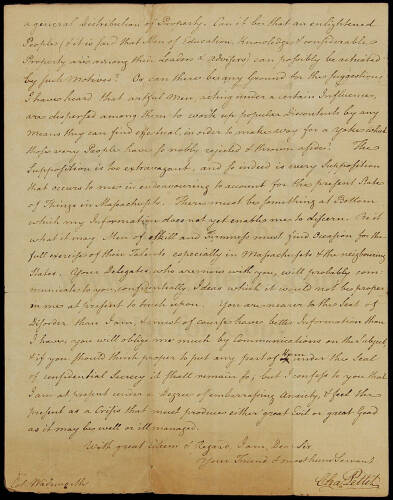 a general Distribution of Property. Can it be that an enlightened
People, & it is said that Men of Education, Knowledge & considerable
Property are among their Leaders & Advisers can possibly be actuated
by such Motives? Or can there be any Ground for the Suggestions
I have heard that artful Men, acting under a certain Influence,
are dispersed among them to work up popular Discontents by any
means they can find effectual, in order to make way for a Yoke which
these very People have so nobly rejected & thrown aside? The
Supposition is too extravagant, and so indeed is every Supposition
that occurs to me in endeavouring to account for the present State
of Things in Massachusetts. There must be something at Bottom
which my Information does not yet enable me to discern. Be it
what it may Men of Skill and Firmness must find Occasion for the
full exercise of their Talents especially in Massachusetts & the neighbouring
States. Your Delegates, who are now with you, will probably com-
municate to you, confidentially, Ideas which it would not be proper
in me at present to touch upon. You are nearer to the Seat of
Disorder than I am, & must of course have better Information than
I have; you will oblige me much by Communications on the Subject,
& if you should think proper to put any part of them under the Seal
of confidential Secrecy it shall remain so; but I confess to you that
I am at present under a Degree of embarrassing Anxiety, & feel the
present as a Crisis that must produce either great Evil or great Good
as it may be well or ill managed.
With great Esteem & Regard, I am, Dear Sir
Your Friend & most hum Servant
Cha. Pettit
Col. Wadsworth